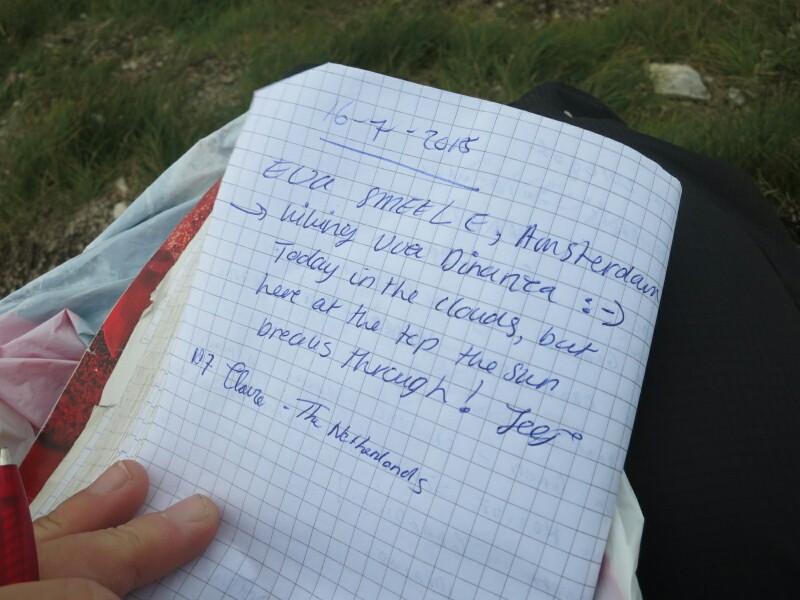 16-7-2015
EVA SMEELE, Amsterdam
→ hiking Via Dinarica :-)
Today in the clouds, but
here at the top the sun
breaks through! Jeeje
17.7. Claire - The Netherlands